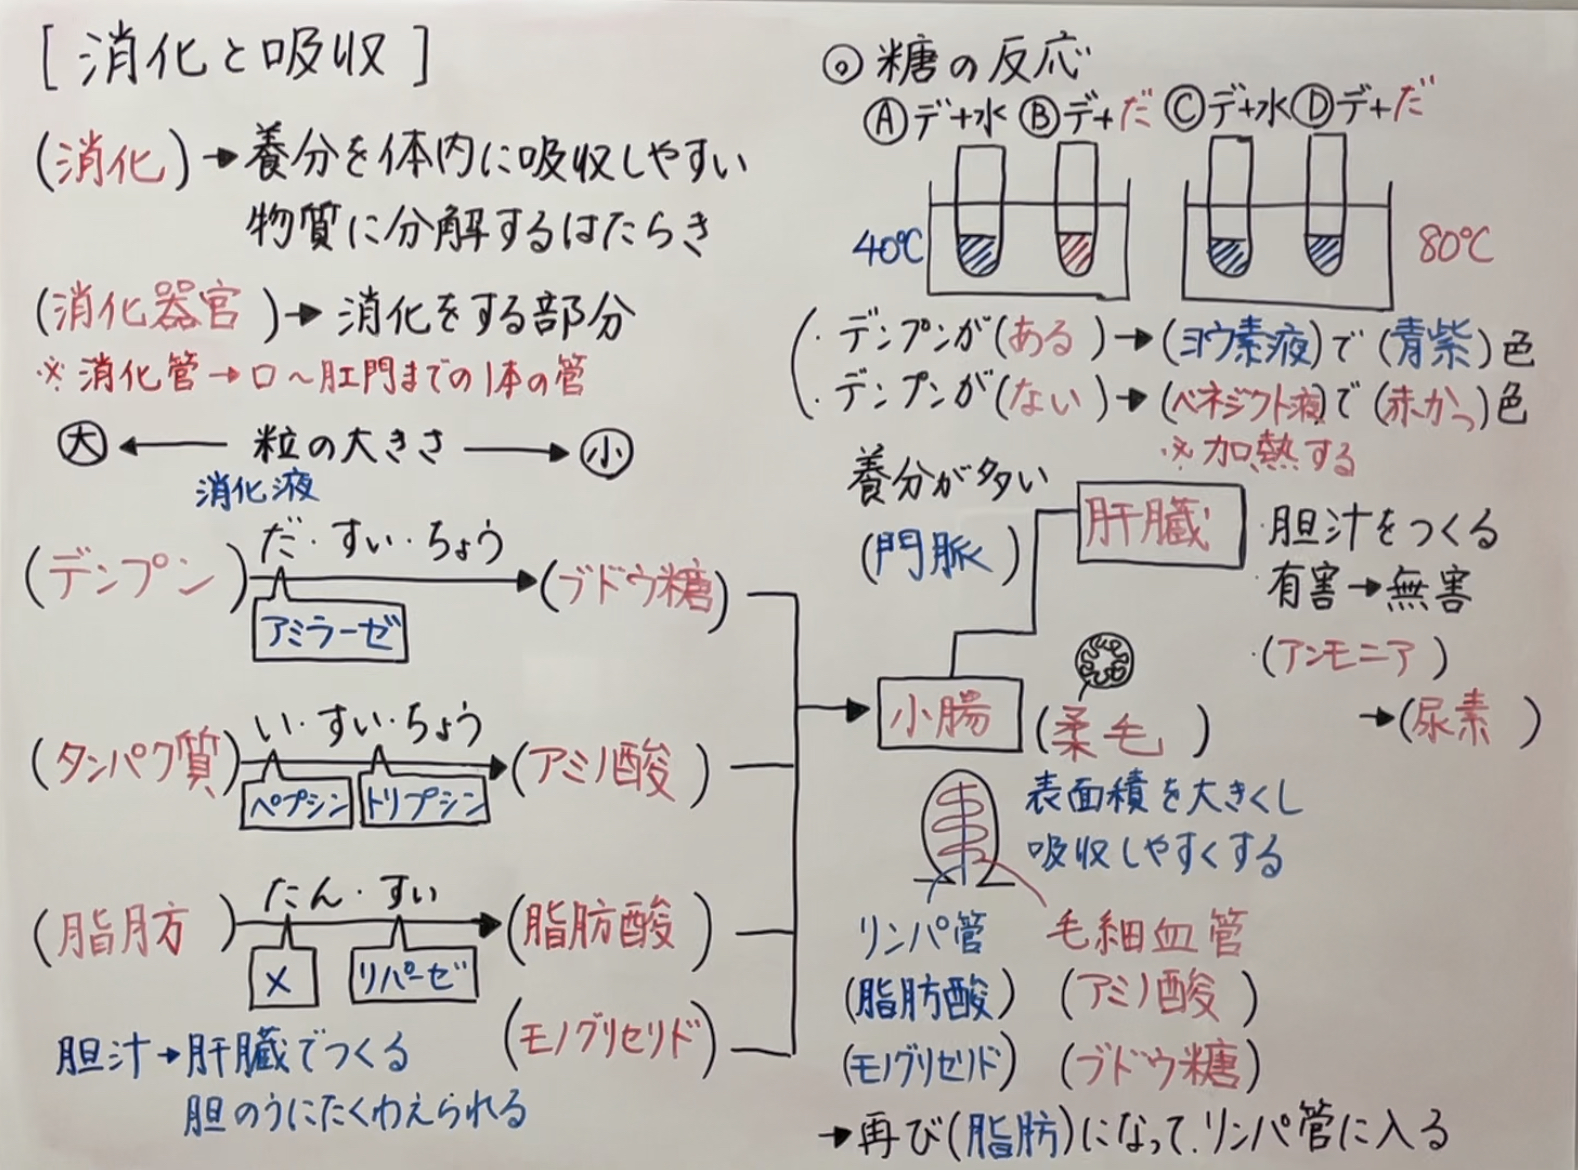 [ 消化と吸収 ]
(消化)→養分を体内に吸収しやすい
物質に分解するはたらき
(消化器官)→消化をする部分
※消化管→口～肛門までの1本の管
大 ← 粒の大きさ → 小
消化液
(デンプン) だ・すい・ちょう (ブドウ糖)
アミラーゼ
(タンパク質) い・すい・ちょう (アミノ酸)
ペプシン トリプシン
(脂肪方) たん・すい (脂肪酸)
× リパーゼ
(モノグリセリド)
胆汁→肝臓でつくる
胆のうにたくわえられる
◎糖の反応
Ⓐデ+水 Ⓑデ+だ Ⓒデ+水 Ⓓデ+だ
40℃ 80℃
・デンプンが(ある)→(ヨウ素液)で(青紫)色
・デンプンが(ない)→(ベネジクト液)で(赤かっ)色
※加熱する
養分が多い
(門脈)
肝臓
・胆汁をつくる
・有害→無害
・(アンモニア)
→(尿素)
小腸 (柔毛)
表面積を大きくし
吸収しやすくする
リンパ管 毛細血管
(脂肪酸) (アミノ酸)
(モノグリセリド) (ブドウ糖)
→再び(脂肪)になって、リンパ管に入る